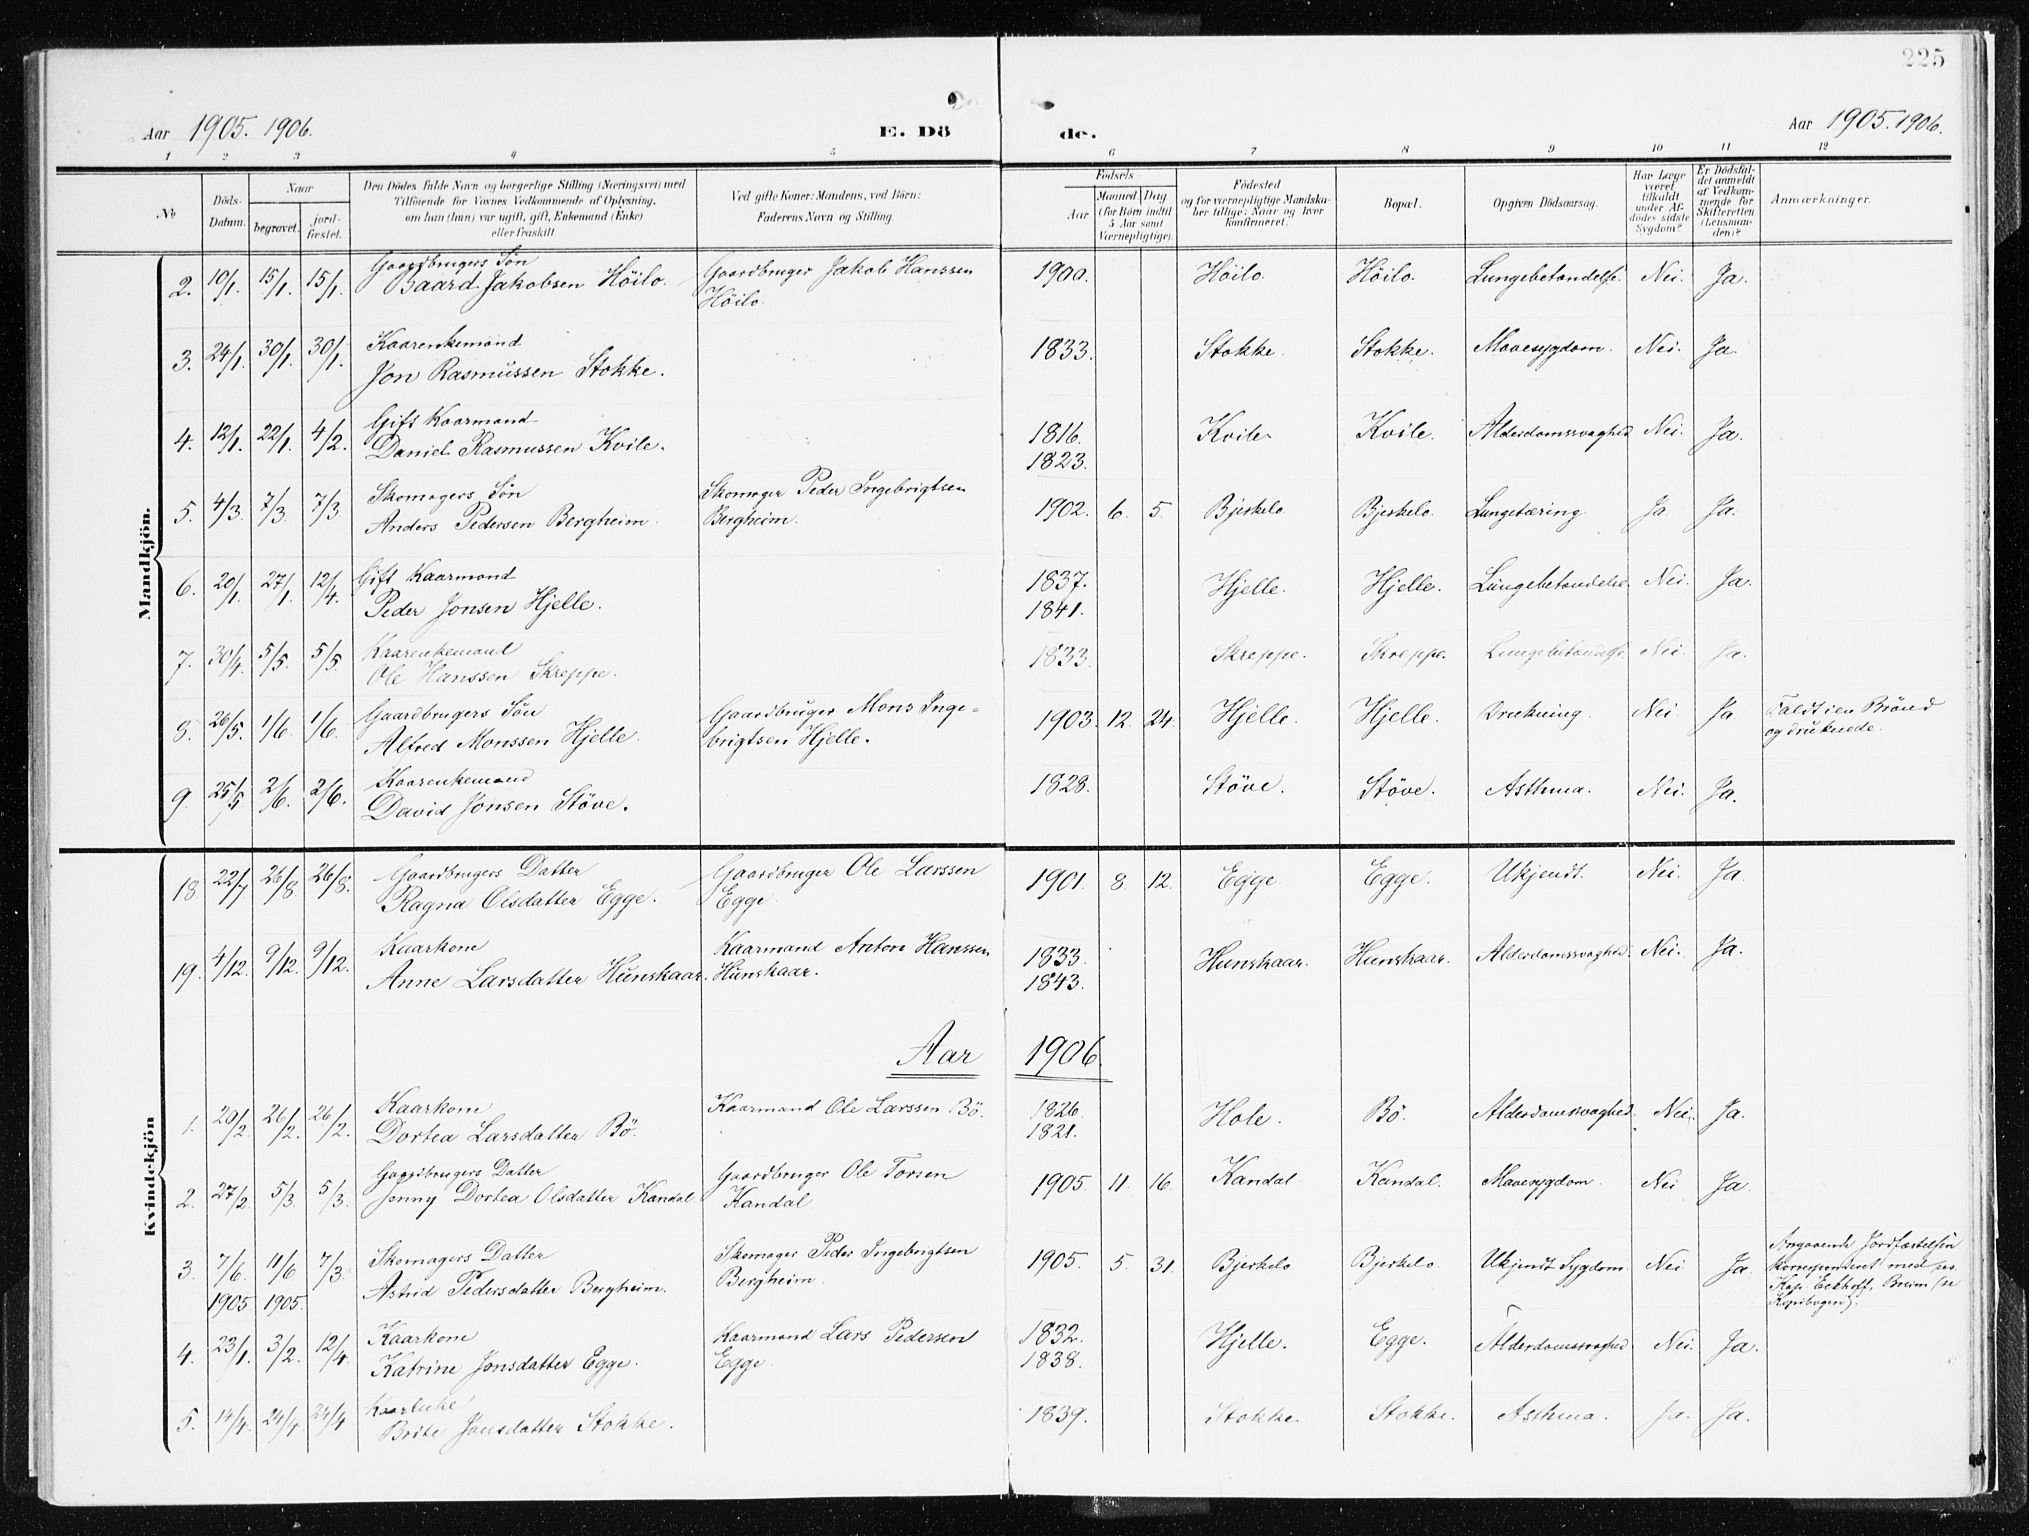 225
Aar 1905. 1906.
E. Dö
de.
Aar 1905. 1906.
1 2 3 4 5 6 7 8 9 10 11 12
No
Döds-
Datum.
Naar
begravet.
jord-
fæstet.
Den Dödes fulde Navn og borgerlige Stilling (Næringsvei) med
Tilföiende for Voxnes Vedkommende af Oplysning,
om han (hun) var ugift, gift, Enkemand (Enke)
eller fraskilt
Ved gifte Koner: Mandens, ved Börn:
Faderens Navn og Stilling.
Födsels-
Aar
Maaned Dag
(for Börn indtil
5 Aar samt
Værnepligtige).
Födested
og for værnepligtige Mandska-
ber tillige: Naar og hvor
konfirmeret.
Bopæl.
Opgiven Dödsaarsag.
Har Læge
været
tilkaldt
under Af-
dödes sidste
Sygdom?
Er Dödsfal-
det anmeldt
af Vedkom-
mende for
Skifteretten
(Lensman-
den)?
Anmærkninger.
Mandkjön.
2. 10/1. 15/1. 15/1. Gaardbrugers Sön
Baard Jakobsen Höilo. Gaardbruger Jakob Hanssen
Höilo. 1900. Höilo. Höilo. Lungebetændelse. Nei. Ja.
3. 24/1. 30/1. 30/1. Kaarenkemand
Jon Rasmussen Stokke. 1833. Stokke. Stokke. Mavesygdom. Nei. Ja.
4. 12/1. 22/1. 4/2. Gift Kaarmand
Daniel Rasmussen Kvile. 1816.
1823. Kvile Kvile. Alderdomssvaghed Nei. Ja.
5. 4/3. 7/3. 7/3 Skomagers Sön
Anders Pedersen Bergheim. Skomager Peder Ingebrigtsen
Bergheim. 1902. 6. 5. Bjerkelo Bjerkelo. Lungetæring. Ja Ja.
6. 20/1. 27/1. 12/4. Gift Kaarmand
Peder Jonsen Hjelle. 1837.
1841. Hjelle. Hjelle. Lungebetændelse. Nei Ja.
7. 30/4. 5/5. 5/5 Kaarenkemand
Ole Hanssen Skreppe. 1833. Skreppe. Skreppe. Lungebetændelse. Nei. Ja.
8. 26/5. 1/6. 1/6. Gaardbrugers Sön
Alfred Monssen Hjelle. Gaardbruger Mons Inge-
brigtsen Hjelle. 1903. 12. 24. Hjelle. Hjelle. Drukning. Nei. Ja Faldt i en Brönd
og druknede.
9. 25/5 2/6. 2/6. Kaarenkemand
David Jonsen Stöve. 1828. Stöve. Stöve. Asthma. Nei. Ja.
Kvindekjön
18. 22/7. 26/8. 26/8. Gaardbrugers Datter
Ragna Olsdatter Egge. Gaardbruger Ole Larssen
Egge 1901. 8. 12. Egge. Egge. Ukjendt. Nei. Ja.
19. 4/12. 9/12. 9/12. Kaarkone
Anne Larsdatter Hunskaar. Kaarmand Anton Hanssen
Hunskaar. 1833.
1843. Hunskaar. Hunskaar. Alderdomssvaghed. Nei. Ja.
Aar 1906.
1. 20/2. 26/2. 26/2. Kaarkone
Dortea Larsdatter Bö. Kaarmand Ole Larssen Bö. 1826.
1821. Hole. Bö. Alderdomssvaghed. Nei. Ja.
2. 27/2. 5/3. 5/3. Gaardbrugers Datter
Jenny Dortea Olsdatter Kandal Gaardbruger Ole Torsen
Kandal. 1905. 11. 16. Kandal. Kandal. Mavesygdom. Nei Ja.
3. 7/6 1905 11/6 1905. 7/3. Skomagers Datter
Astrid Pedersdatter Bergheim. Skomager Peder Ingebrigtsen
Bergheim. 1905. 5. 31. Bjerkelo Bjerkelo. Ukjendt Sygdom. Nei Ja. Angaaende Jordfæstelsen
korresponderet med res.
Kap. Eckhoff, Breim (se
Kopibogen).
4. 23/1. 3/2. 12/4. Kaarkone
Katrine Jonsdatter Egge. Kaarmand Lars Pedersen
Egge. 1832.
1838. Hjelle. Egge. Alderdomssvaghed. Nei. Ja.
5. 14/4. 24/4. 24/4 Kaarenke
Brite Jonsdatter Stokke. 1839. Stokke. Stokke. Asthma. Ja. Ja.